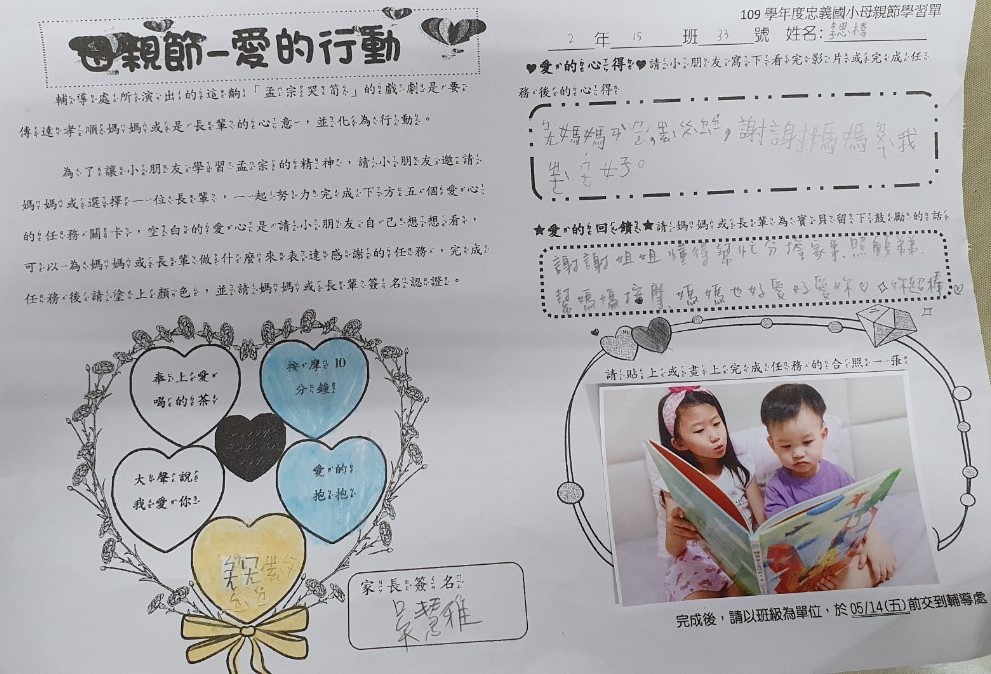 母親節–愛的行動
輔導處所演出的這齣「孟宗哭筍」的戲劇是要
傳達孝順媽媽或是長輩的心意，並化為行動。
為了讓小朋友學習孟宗的精神，請小朋友邀請
媽媽或選擇一位長輩，一起努力完成下方五個愛心
的任務關卡，空白的愛心是請小朋友自己想想看，
可以為媽媽或長輩做什麼來表達感謝的任務，完成
任務後請塗上顏色，並請媽媽或長輩簽名認證。
奉上愛
喝的茶
按摩 10
分鐘
大聲說
我愛你
愛的
抱抱
家長簽名
吳慧雅
109 學年度忠義國小母親節學習單
2 年 15 班 33 號 姓名:
♥愛的心得♥請小朋友寫下看完影片或完成任
務後的心得
謝謝媽媽 我
★愛的回饋★請媽媽或長輩為寶貝留下鼓勵的話
謝謝姐姐懂得幫忙分擔家事.照顧妹.
幫媽媽按摩.媽媽也好愛好愛妳♡ 妳超棒♡
請貼上或畫上完成任務的合照一張
完成後，請以班級為單位，於 05/14(五)前交到輔導處